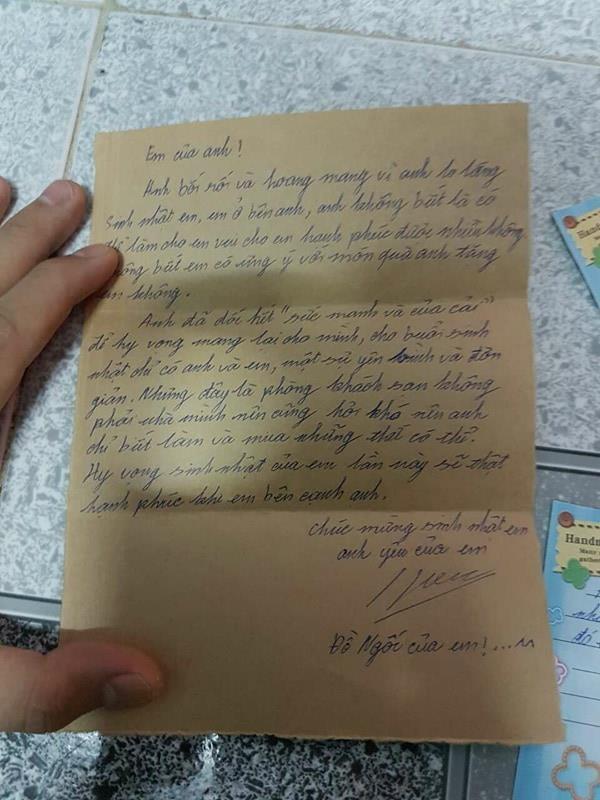 Em của anh!
Anh bối rối và hoang mang vì anh lo lắng
sinh nhật em, em ở bên anh, anh không biết là có
để làm cho em vui cho em hạnh phúc được nhiều không
không biết em có ưng ý với món quà anh tặng
em không.
Anh đã dốc hết "sức mạnh và của cải"
để hy vọng mang lại cho mình, cho buổi sinh
nhật chỉ có anh và em, một sự yên bình và đơn
giản. Nhưng đây là phòng khách sạn không
phải nhà mình nên cũng hơi khó nên anh
chỉ biết làm và mua những thứ có thể.
Hy vọng sinh nhật của em lần này sẽ thật
hạnh phúc khi em bên cạnh anh.
Chúc mừng sinh nhật em
anh yêu của em
Đồ Ngốc của em!...^^
Handm
Many
gather
Handm
Many
gather
nhi
đó